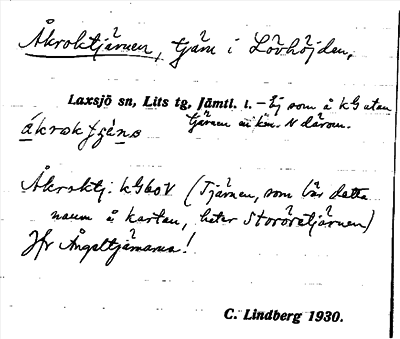 Åkroktjärnen, tjärn i Lövhöjden,
Laxsjö sn, Lits tg, Jämtl. l. – Ej som å kG utan
tjärnen en km. N därom.
åkroktjäṇṇ
Åkroktj. kG 60 V (Tjärnen, som bär detta
namn å kartan, heter Storöratjärnen)
Jfr Ångeltjärnarna!
C. Lindberg 1930.